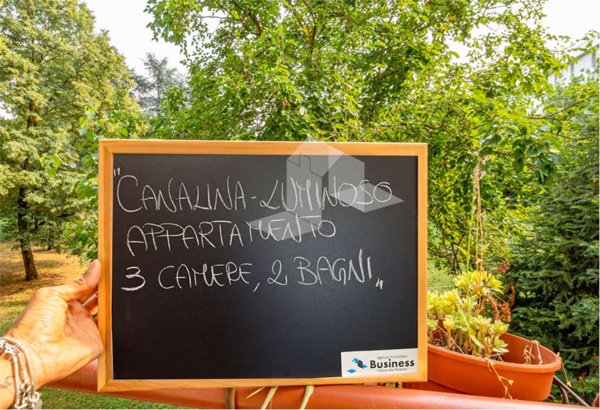 "CANALINA - LUMINOSO
APPARTAMENTO
3 CAMERE, 2 BAGNI„
Agenzia Immobiliare
Business